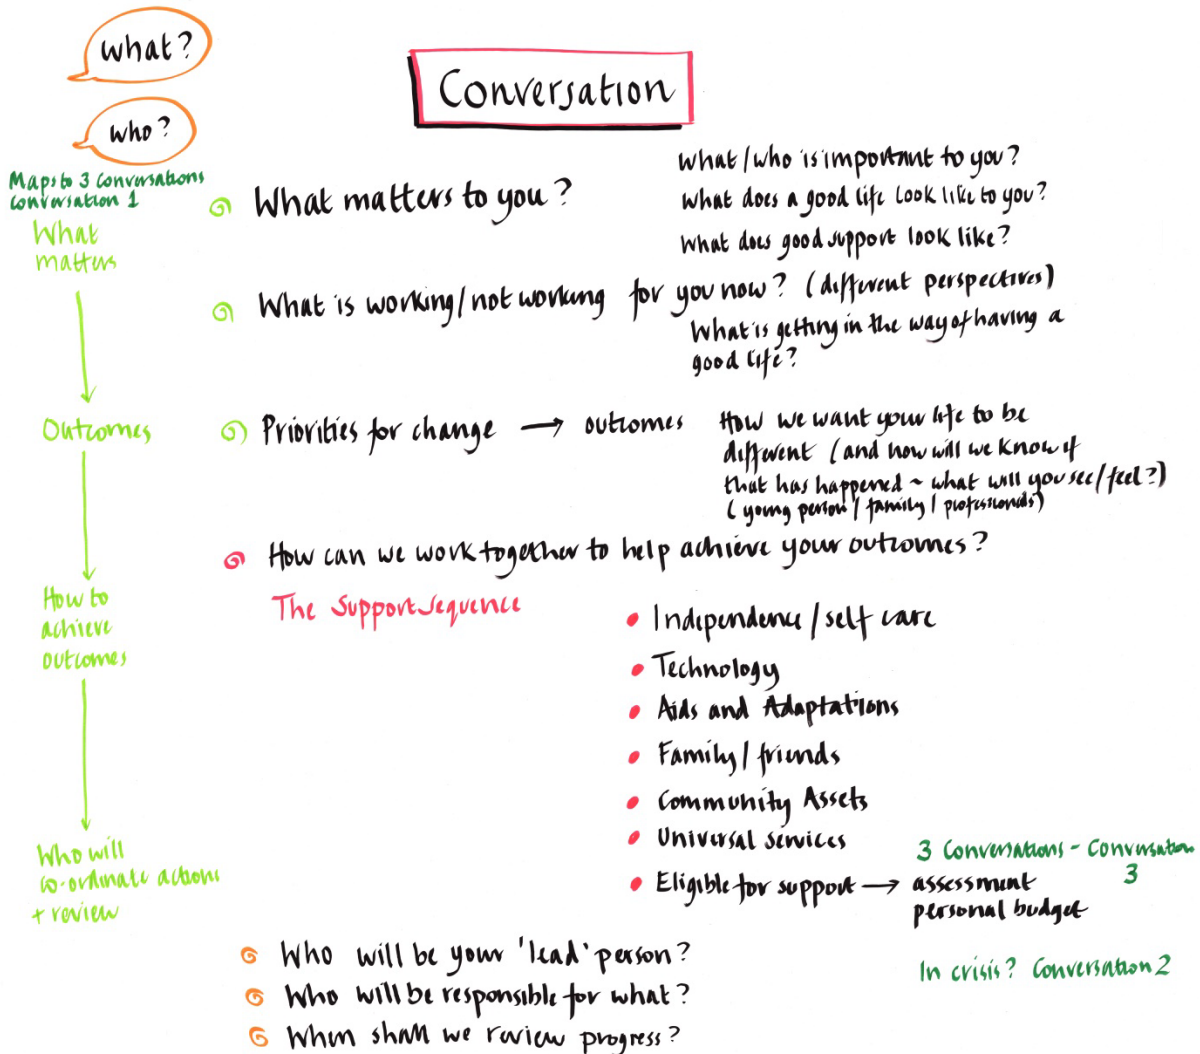 what?
who?
Conversation
Maps to 3 Conversations
Conversation 1
What
matters
What matters to you?
What/who is important to you?
What does a good life look like to you?
What does good support look like?
What is working/not working for you now? (different perspectives)
What is getting in the way of having a
good life?
Outcomes
Priorities for change → outcomes
How we want your life to be
different (and how will we know if
that has happened ~ what will you see/feel?)
(young person/family/professionals)
How can we work together to help achieve your outcomes?
How to
achieve
outcomes
The Support Sequence
Independence/self care
Technology
Aids and Adaptations
Family/friends
Community Assets
Universal services
Eligible for support → assessment
personal budget
3 Conversations - Conversation
3
In crisis? Conversation 2
Who will
co-ordinate actions
+ review
Who will be your 'lead' person?
Who will be responsible for what?
When shall we review progress?